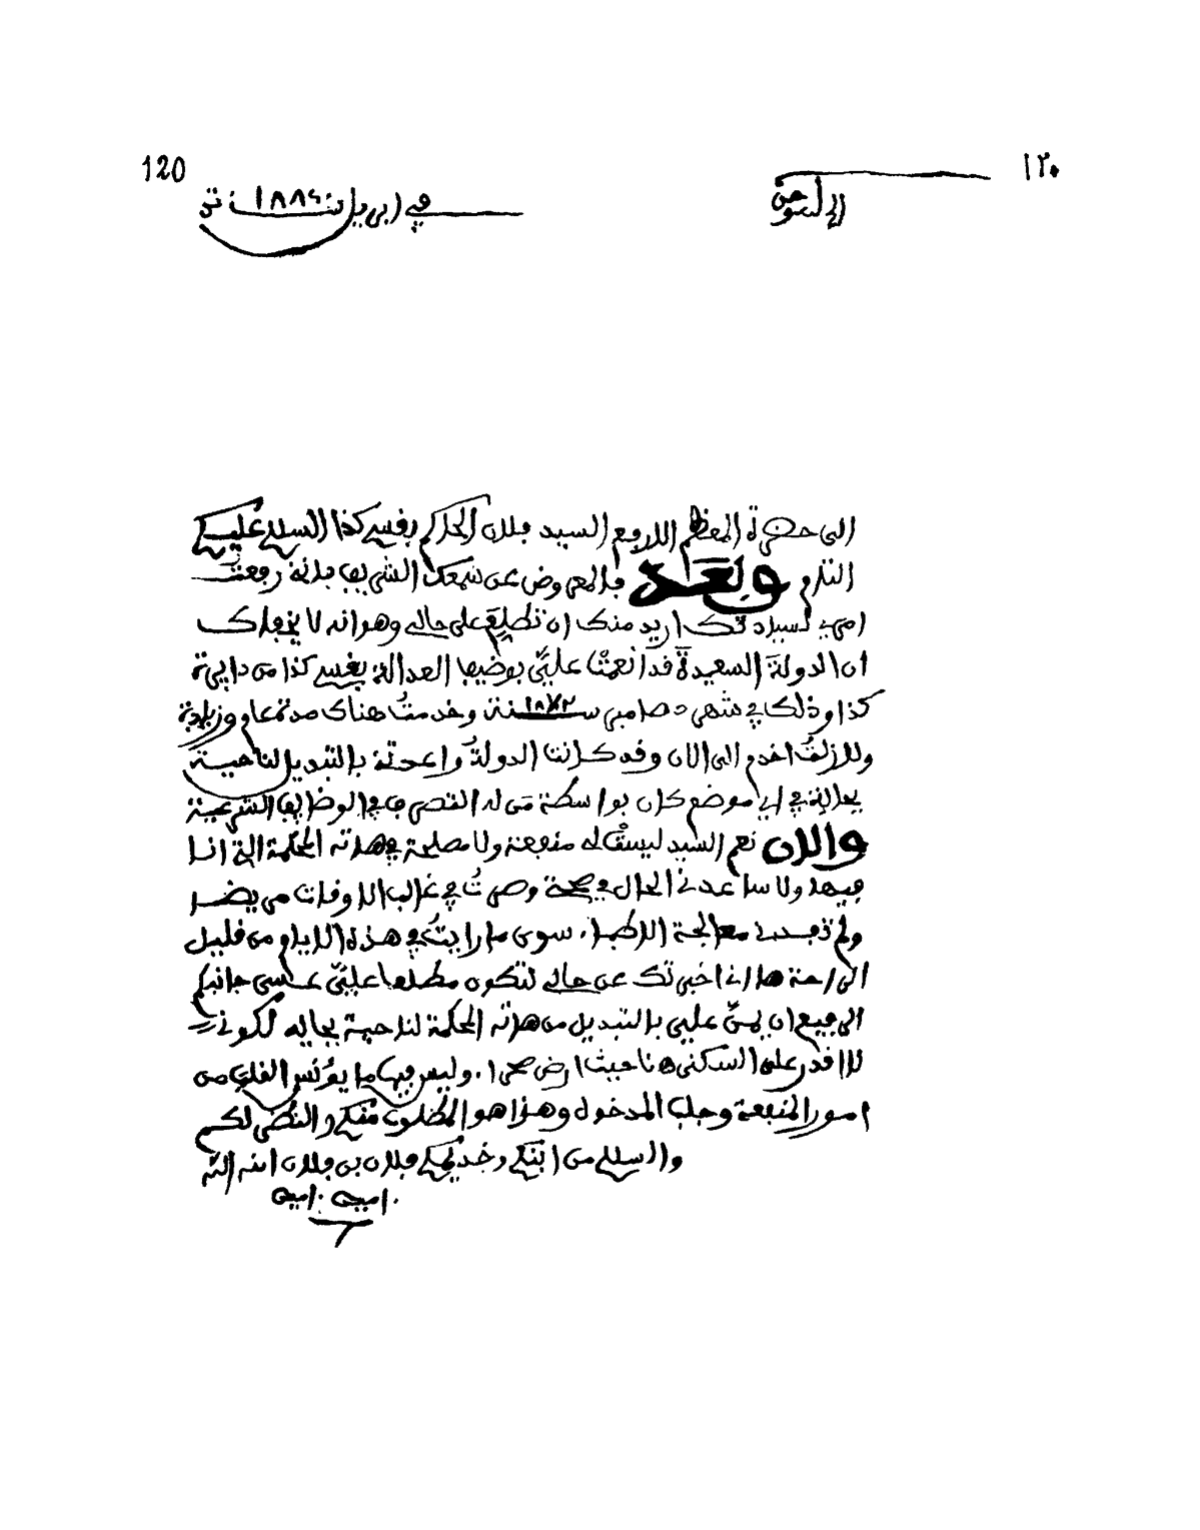 120
١٢٠
في ابريل سنة ١٨٨٤
الى حضرة المعظم الارفع السيد فلان الحاكم بقسم كذا السلام عليكم
التام وبعد فالمعروض عن سمعك الشريف بانه رفعت
امري لسيادتك اريد منك ان تطلع على حالي وهو انه لا يخفاك
ان الدولة السعيدة قد انعمت علي بوضيفة العدالة بقسم كذا من دايرة
كذا وذلك في شهر دصامبر سنة ١٨٧٢ وخدمت هناك مدة عام وزيادة
ولا زلت اخدم الى الان وقد كانت الدولة واعدتنا بالتبديل لناحية
في اي موضع كان بواسطة من له التصرف في الوظايف الشرعية
والان نعم السيد ليست له منفعة ولا مصلحة في هاته المحكمة التي انا
فيها ولا ساعدني الحال في صحة وصرت في غالب الاوقات مريضا
ولم تفدني معالجة الاطباء سوى ما رايت في هذه الايام من قليل
الراحة ها اني اخبرتك عن حالي لتكون مطلعا علي عسى جانبكم
الرفيع ان يمن علي بالتبديل من هاته المحكمة لناحية بجاية لكوني
لا اقدر على السكنى هنا حيث ارض صحراء وليس فيها ما يؤنس القلب من
امور المنفعة وجلب المدخول وهذا هو المطلوب منكم والنظر لكم
والسلام من ابنكم وخديمكم فلان بن فلان امنه الله
امين امين